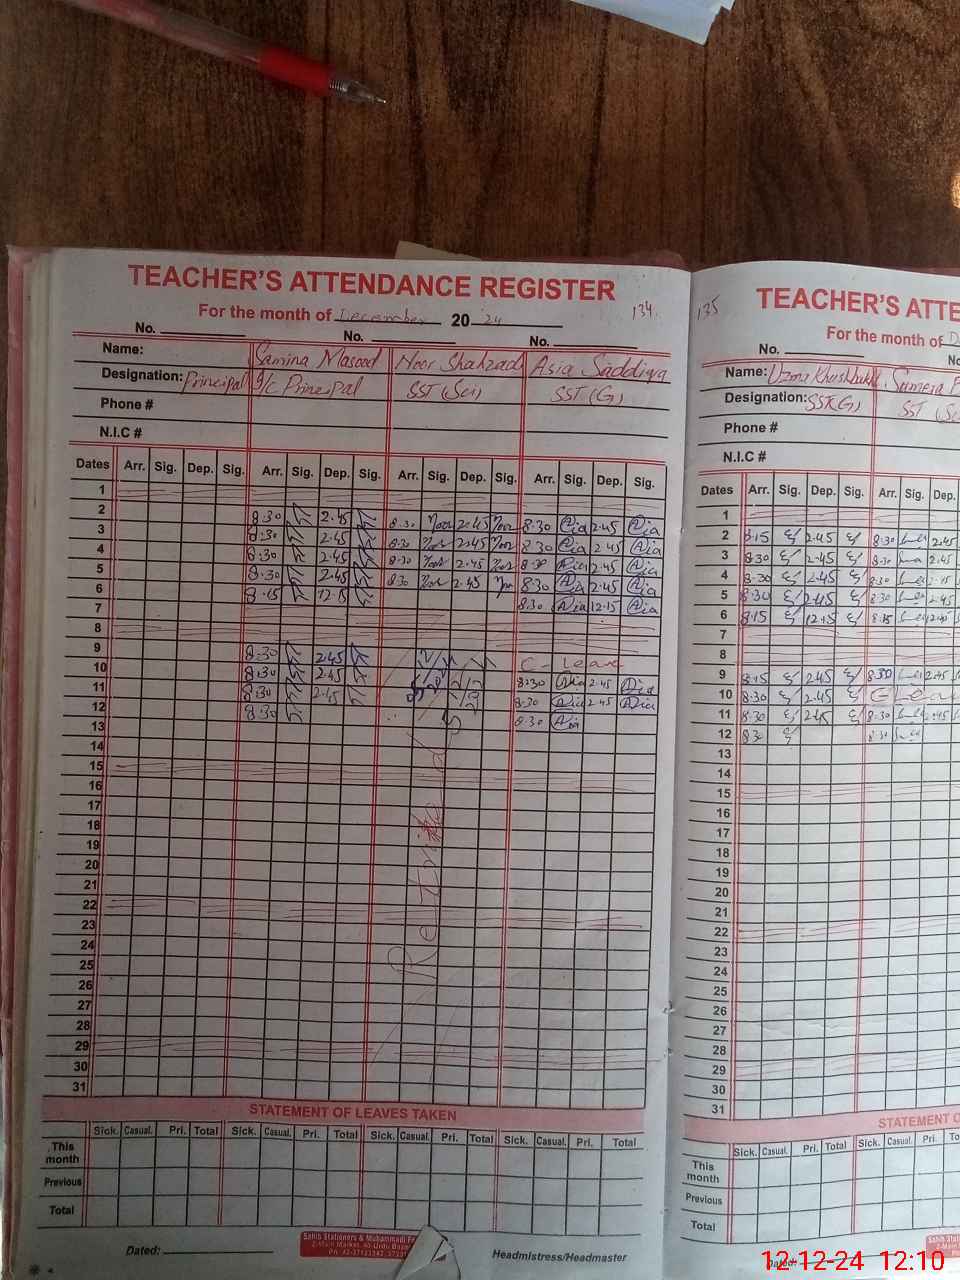 TEACHER'S ATTENDANCE REGISTER
For the month of December 2024
134
No. No. No.
Name: Samina Masood Noor Shahzad Asia Saddiqa
Designation: Principal I/c Principal SST (Sci) SST (G)
Phone #
N.I.C #
Dates Arr. Sig. Dep. Sig. Arr. Sig. Dep. Sig. Arr. Sig. Dep. Sig. Arr. Sig. Dep. Sig.
1
2 8:30 2.45 8:30 Noor 2.45 Noor 8:30 Asia 2.45 Asia
3 8:30 2.45 8:30 Noor 2.45 Noor 8:30 Asia 2.45 Asia
4 8:30 2.45 8:30 Noor 2.45 Noor 8:30 Asia 2.45 Asia
5 8:30 2.45 8:30 Noor 2.45 Noor 8:30 Asia 2.45 Asia
6 8:15 12.15 8:30 Asia 12.15 Asia
7
8
9 8:30 2.45 C - Leave
10 8:30 2.45 8:30 Asia 2.45 Asia
11 8:30 2.45 8:30 Asia 2.45 Asia
12 8:30 8:30 Asia
13
14
15
16
17
18
19
20
21
22
23
24
25
26
27
28
29
30
31
STATEMENT OF LEAVES TAKEN
Sick. Casual. Pri. Total Sick. Casual. Pri. Total Sick. Casual. Pri. Total Sick. Casual. Pri. Total
This month
Previous
Total
Dated: Headmistress/Headmaster
135
TEACHER'S ATTE
For the month of D
No. No
Name: Uzma Khushbakht Sumera
Designation: SST(G) SST (Sc
Phone #
N.I.C #
Dates Arr. Sig. Dep. Sig. Arr. Sig. Dep.
1
2 8:15 2.45 8:30 2.45
3 8:30 2.45 8:30 2.45
4 8:30 2.45 8:30 2.45
5 8:30 2.45 8:30 2.45
6 8:15 12.15 8:15
7
8
9 8:15 2.45 8:30 2.45
10 8:30 2.45 C Leav
11 8:30 2.45 8:30 2.45
12 8:30
13
14
15
16
17
18
19
20
21
22
23
24
25
26
27
28
29
30
31
STATEMENT O
Sick. Casual. Pri. Total Sick. Casual. Pri. To
This month
Previous
Total
Dated:
12-12-24 12:10